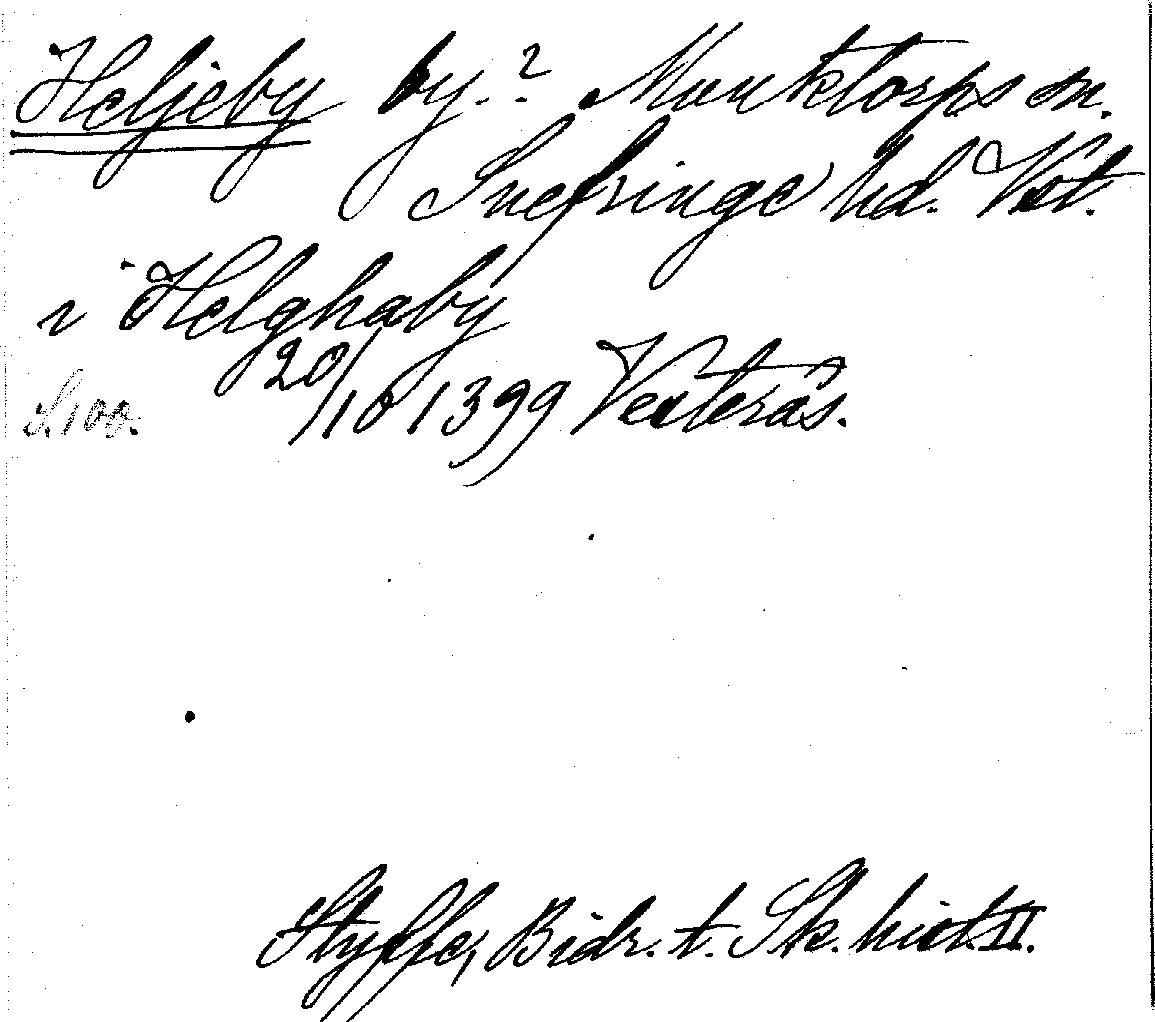 Heljeby by.? Munktorps sn.
Snefringe hd. Vst.
i Helghaby
20/10 1399 Vesterås.
S. 100.
Styffe, Bidr. t. Sk. hist. II.